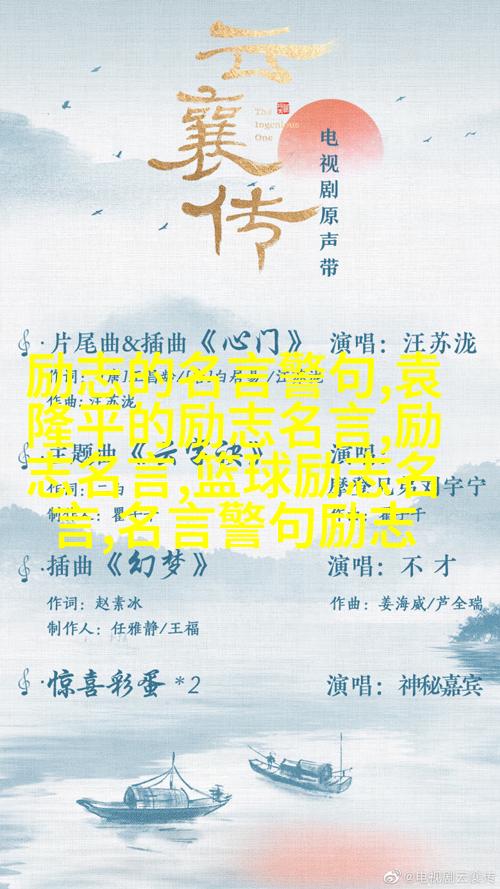 云襄传
The
Ingenious
One
电视剧原声带
片尾曲&插曲《心门》 演唱：汪苏泷
作曲：汪苏泷
励志的名言警句,袁
隆平的励志名言,励
志名言,篮球励志名
言,名言警句励志
主题曲
演唱：
摩登兄弟刘宇宁
插曲《幻梦》 演唱：不才
作词：赵素冰 作曲：姜海威/芦全瑞
制作人：任雅静/王福
惊喜彩蛋*2 演唱：神秘嘉宾
@电视剧云襄传